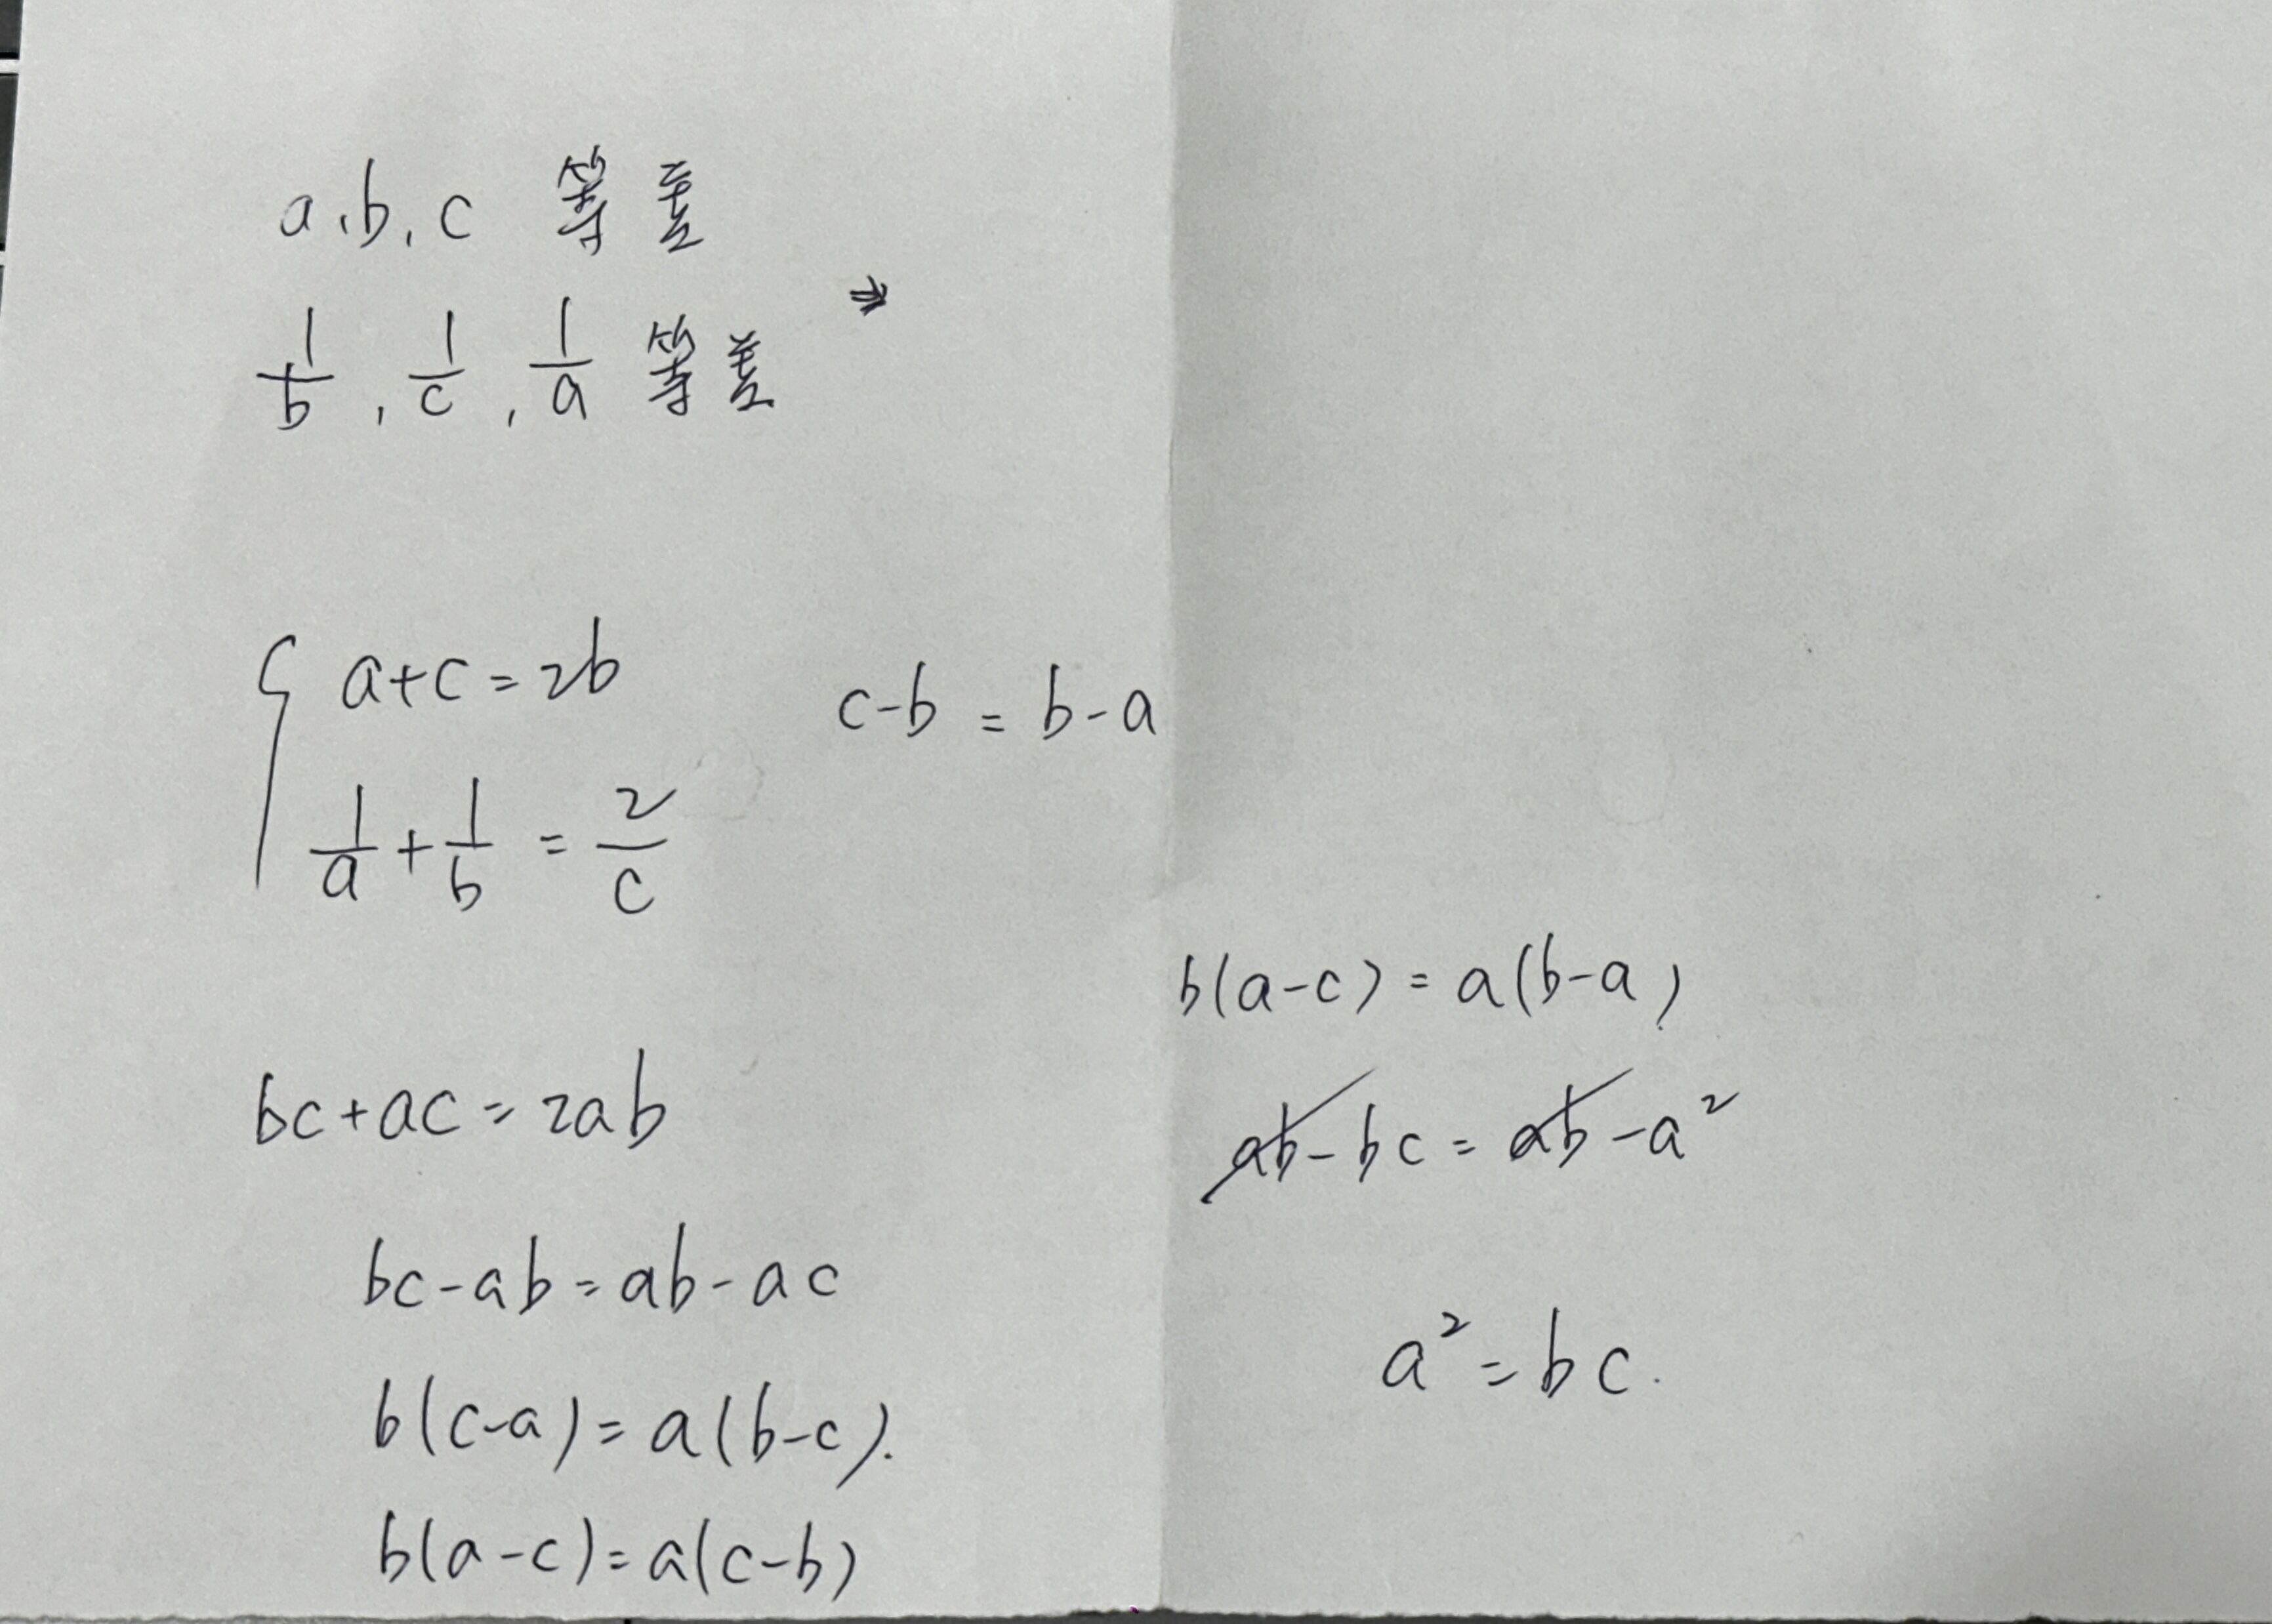 a, b, c 等差
1/b, 1/c, 1/a 等差 ⇒
{ a+c=2b
c-b = b-a
1/a + 1/b = 2/c
bc+ac=2ab
bc-ab=ab-ac
b(c-a)=a(b-c).
b(a-c)=a(c-b)
b(a-c)=a(b-a)
ab-bc=ab-a²
a²=bc.